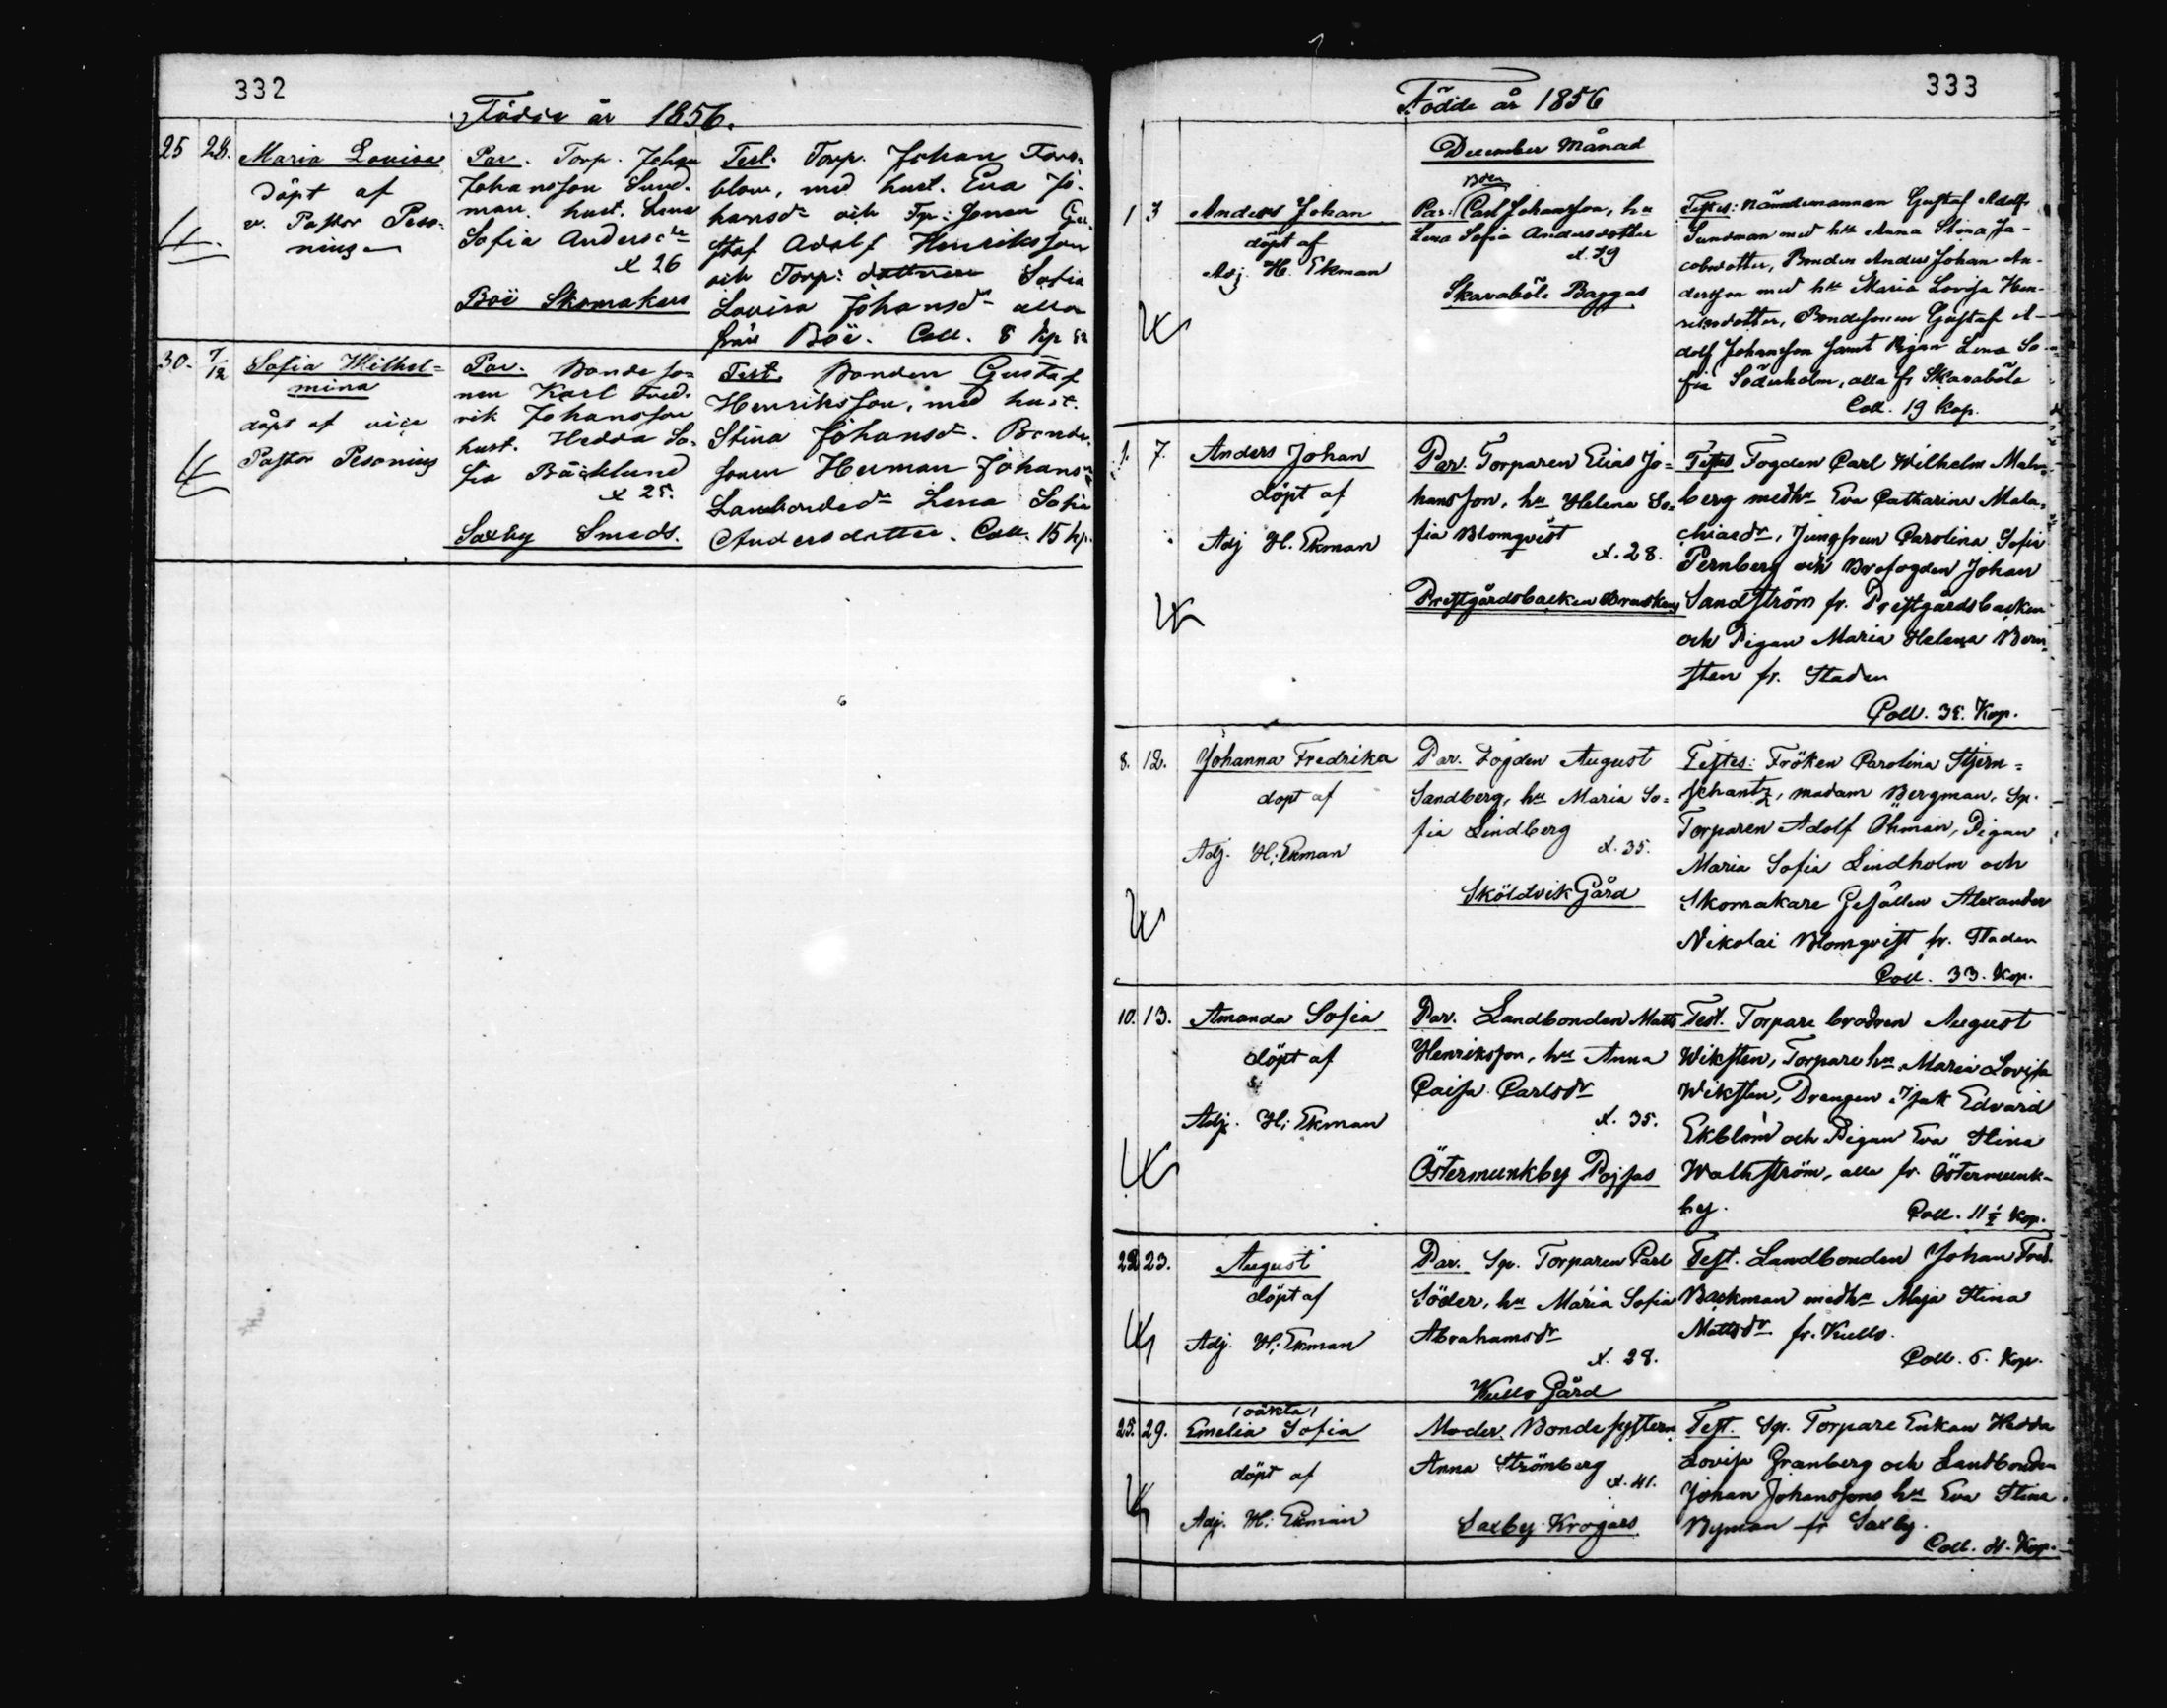 332
Födde år 1856.
25 28. Maria Lovisa
döpt af
v. Pastor Peso-
nius
Par. Torp. Johan
Johansson Sund-
man. hust. Lena
Sofia Andersdr
x 26
Boë Skomakars
Test. Torp. Johan Fors-
blom, med hust. Eva Jo-
hansdr och Tp: sonen Gu-
staf Adolf Henriksson
och Torp: dottren Sofia
Lovisa Johansdr alla
från Boë. Coll. 8 kp
30. 7/12 Sofia Wilhel-
mina
döpt af vice
Pastor Pesonius
Par. Bonde so-
nen Karl Fred-
rik Johansson
hust. Hedda So-
fia Bäcklund
x 25.
Saxby Smeds.
Test. Bonden Gustaf
Henriksson, med hust.
Stina Johansdr. Bonde-
sonen Herman Johans
Lena Sofia
Andersdotter. Coll. 15 kp.
333
Födde år 1856
December Månad
1 3 Anders Johan
döpt af
Adj. H. Ekman
Par: Carl Johansson, hu
Lena Sofia Andersdotter
x. 29
Skavaböle Baggas
Testes: Nämndemannen Gustaf Adolf
Sundman med hu Anna Stina Ja-
cobsdotter, Bonden Anders Johan An-
dersson med hu Maria Lovisa Hen-
riksdotter, Bondesonen Gustaf A-
dolf Johansson samt Pigan Lena So-
fia Söderholm, alla fr Skavaböle
Coll. 19 Kop.
1. 7. Anders Johan
döpt af
Adj H. Ekman
Par. Torparen Elias Jo-
hansson, hu Helena So-
fia Blomqvist
x. 28.
Prestgårdsbacken
Testes Fogden Carl Wilhelm Malm-
berg med hu Eva Catharina Mala-
chiasdr, Jungfrun Carolina Sofia
Pernberg och Brofogden Johan
Sandström fr. Prestgårdsbacken
och Pigan Maria Helena Bom-
sten fr. Staden
Coll. 35. Kop.
8. 12. Johanna Fredrika
döpt af
Adj. H. Ekman
Par. Fogden August
Sandberg, hu Maria So-
fia Lindberg
x. 35.
Sköldvik Gård
Testes: Fröken Carolina Stjern-
schantz, madam Bergman, Sp.
Torparen Adolf Öhman, Pigan
Maria Sofia Lindholm och
Skomakare Gesällen Alexander
Nikolai Blomqvist fr. Staden
Coll. 33. Kop.
10. 13. Amanda Sofia
döpt af
Adj. H. Ekman
Par. Landbonden Matts
Henriksson, hu Anna
Caisa Carlsdr
x. 35.
Östermunkby Pojsas
Test. Torpare brodren August
Wiksten, Torpare hu Maria Lovisa
Wiksten, Drengen Isak Edvard
Ekblom och Pigan Eva Stina
Wallström, alla fr. Östermunk-
by. Coll. 11 1/2 Kop.
22 23. August
döpt af
Adj. H. Ekman
Par. Sp. Torparen Carl
Söder, hu Maria Sofia
Abrahamsdr
x. 28.
Kullo Gård
Test. Landbonden Johan Fred.
Backman med hu Maja Stina
Mattsdr fr. Kullo.
Coll. 6. Kop.
25. 29. (oäkta)
Emelia Sofia
döpt af
Adj. H. Ekman
Moder. Bonde systern
Anna Strömberg
x. 41.
Saxby Krogars
Test. Sp. Torpare Enkan Hedda
Lovisa Granberg och Landbonden
Johan Johanssons hu Eva Stina
Nyman fr Saxby.
Coll. 4. Kop.